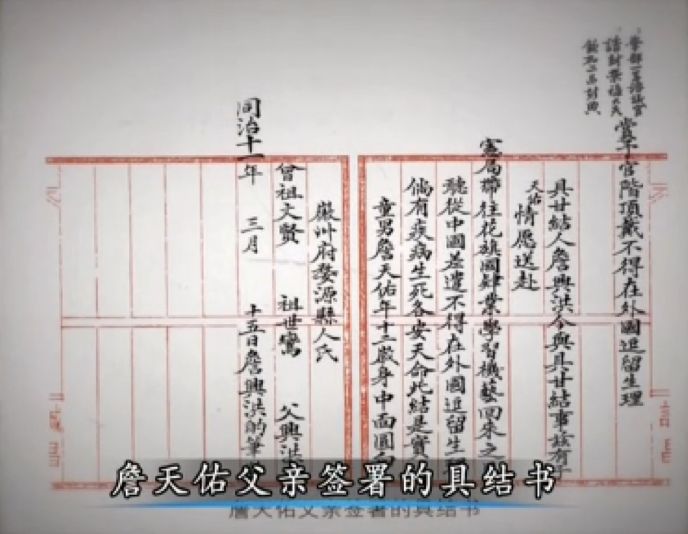 當予官階頂戴不得在外國逗留生理
具甘結人詹興洪今與具甘結事茲有子
天佑情愿送赴
憲局帶往花旗國肄業學習機藝回來之
聽從中國差遣不得在外國逗留生
倘有疾病生死各安天命此結是實
童男詹天佑年十二歲身中面圓白
徽州府婺源縣人氏
曾祖文賢 祖世鸞 父興洪
同治十一年 三月 十五日詹興洪的筆
詹天佑父亲签署的具结书
詹天佑父亲签署的具结书